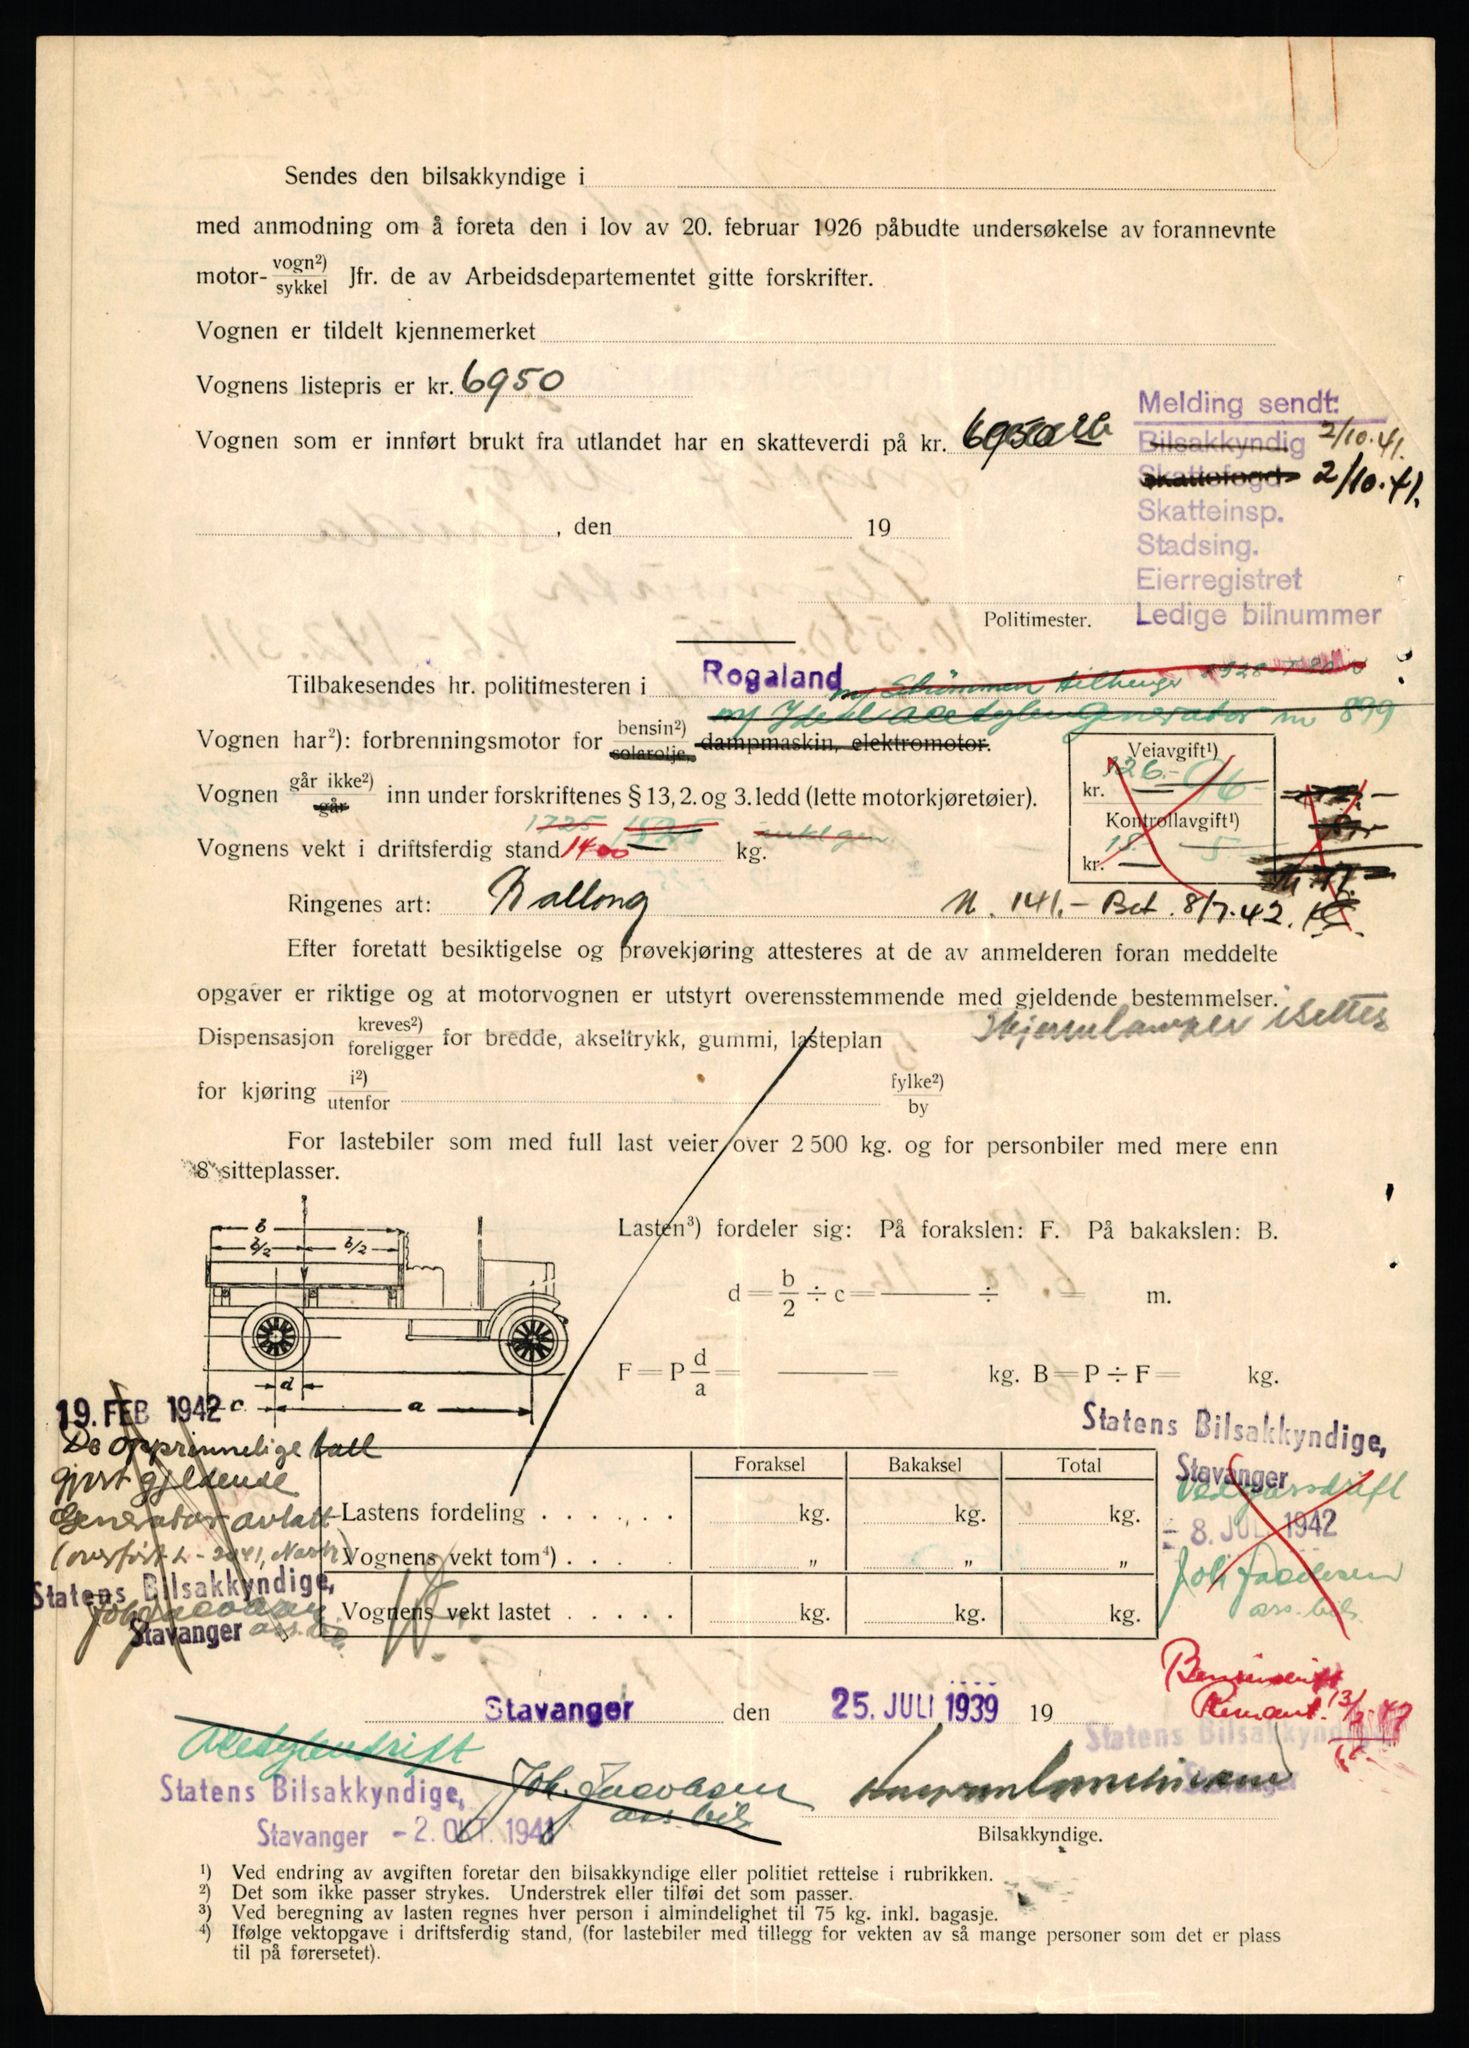 Sendes den bilsakkyndige i
med anmodning om å foreta den i lov av 20. februar 1926 påbudte undersøkelse av forannevnte
motor- vogn²) / sykkel Jfr. de av Arbeidsdepartementet gitte forskrifter.
Vognen er tildelt kjennemerket
Vognens listepris er kr. 6950
Melding sendt:
Vognen som er innført brukt fra utlandet har en skatteverdi på kr. 6950
Bilsakkyndig 2/10.41.
Skattefogd 2/10.41.
Skatteinsp.
, den 19
Stadsing.
Eierregistret
Politimester. Ledige bilnummer
Tilbakesendes hr. politimesteren i Rogaland
acetylengenerator nr 899
Vognen har²): forbrenningsmotor for bensin²) / solarolje, dampmaskin, elektromotor.
Veiavgift¹)
kr. 126.-
Vognen går ikke²) / går inn under forskriftenes § 13, 2. og 3. ledd (lette motorkjøretøier).
Kontrollavgift¹)
kr. 15 5
1725 1525
Vognens vekt i driftsferdig stand 1400 kg.
Ringenes art: Ballong
N. 141.- Bet. 8/7.42.
Efter foretatt besiktigelse og prøvekjøring attesteres at de av anmelderen foran meddelte
opgaver er riktige og at motorvognen er utstyrt overensstemmende med gjeldende bestemmelser.
Skjermlamper
Dispensasjon kreves²) / foreligger for bredde, akseltrykk, gummi, lasteplan
for kjøring i²) / utenfor fylke²) / by
For lastebiler som med full last veier over 2 500 kg. og for personbiler med mere enn
8 sitteplasser.
b
b/2 b/2
Lasten³) fordeler sig: På forakslen: F. På bakakslen: B.
d = b/2 ÷ c = ÷ = m.
F = P d/a = = kg. B = P ÷ F = kg.
d
c a
19. FEB 1942
De opprinnelige tall
gjort gjeldende
Generator avtatt
(overført L-2041, Nærb)
Statens Bilsakkyndige,
Joh Jacobsen
Stavanger ass. bil.
Foraksel Bakaksel Total
Lastens fordeling . . . . . . kg. kg. kg.
Vognens vekt tom⁴) . . . . „ „ „
Vognens vekt lastet . . . . . kg. kg. kg.
Statens Bilsakkyndige,
Stavanger
Vedgassdrift
- 8. JULI 1942
Joh Jacobsen
ass. bil.
Bensindrift
13/
Stavanger den 25. JULI 1939 19
Statens Bilsakkyndige
Stavanger
Acetylendrift
Statens Bilsakkyndige, Joh. Jacobsen
ass. bil.
Stavanger - 2. OKT. 1941
Bilsakkyndige.
¹) Ved endring av avgiften foretar den bilsakkyndige eller politiet rettelse i rubrikken.
²) Det som ikke passer strykes. Understrek eller tilføi det som passer.
³) Ved beregning av lasten regnes hver person i almindelighet til 75 kg. inkl. bagasje.
⁴) Ifølge vektopgave i driftsferdig stand, (for lastebiler med tillegg for vekten av så mange personer som det er plass
til på førersetet).